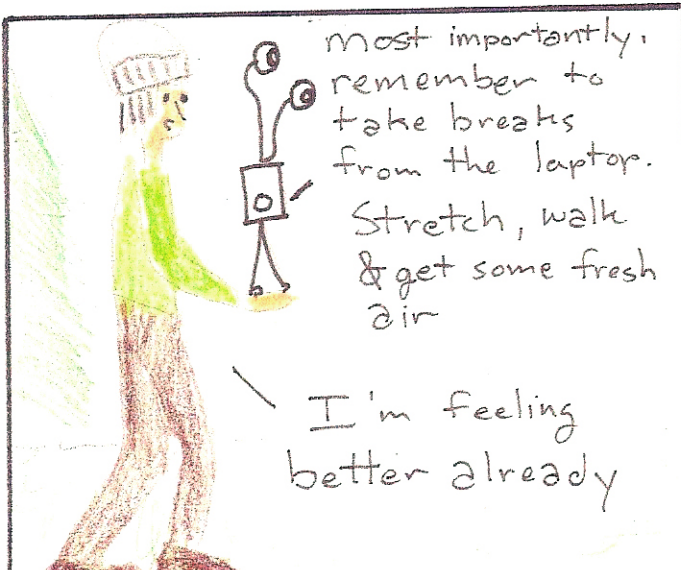 most importantly,
remember to
take breaks
from the laptop.
Stretch, walk
& get some fresh
air
I'm feeling
better already